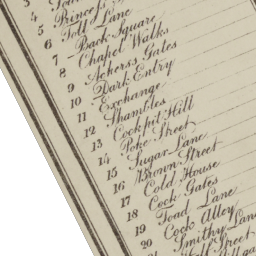 3
4
5 Princess
6 Toll Lane
7 Back Square
8 Chapel Walks
9 Ackerss Gates
10 Dark Entry
11 Exchange
12 Shambles
13 Cockpit Hill
14 Poke Street
15 Sugar Lane
16 Brown Street
17 Cold House
18 Cock Gates
19 Toad Lane
20 Cock Alley
Smithy Lane
Street